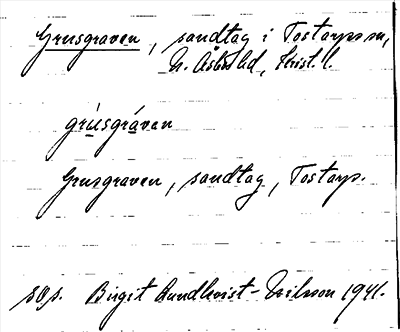 Grusgraven, sandtag i Tostarps sn,
N. Åsbo hd, Krist. l.
grùsgràven
Grusgraven, sandtag, Tostarp.
sOp. Birgit Rundkvist-Nilsson 1941.